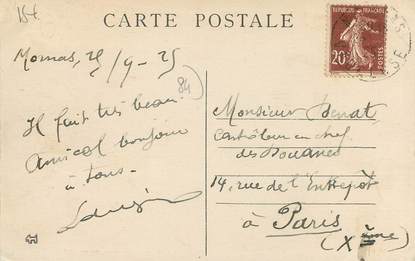 15f
CARTE POSTALE
Mornas, 25/9-25
REPUBLIQUE FRANÇAISE
20c
POSTES
84
Il fait très beau.
Amical bonjour
à tous.
Monsieur Benat
Contrôleur en chef
des Douanes
14, rue de l'Entrepôt
à Paris
(Xème)